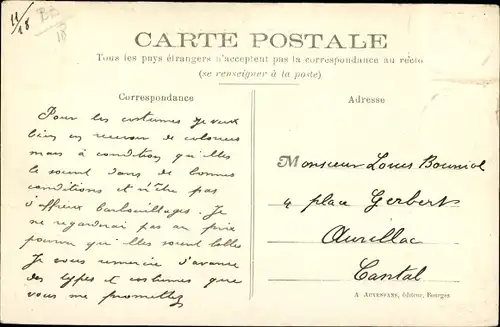 11/18
BB
18
CARTE POSTALE
Tous les pays étrangers n'acceptent pas la correspondance au recto
(se renseigner à la poste)
Correspondance
Pour les costumes je veux
bien en recevoir de coloriées
mais à condition qu'elles
le soient dans de bonnes
conditions et n'être pas
d'affreux barbouillages. Je
ne regarderai pas au prix
pourvu qu'elles soient belles
Je vous remercie d'avance
des types et costumes que
vous me promettez
Adresse
Monsieur Louis Bouniol
4 place Gerbert
Aurillac
Cantal
A. Auxenfans, éditeur, Bourges